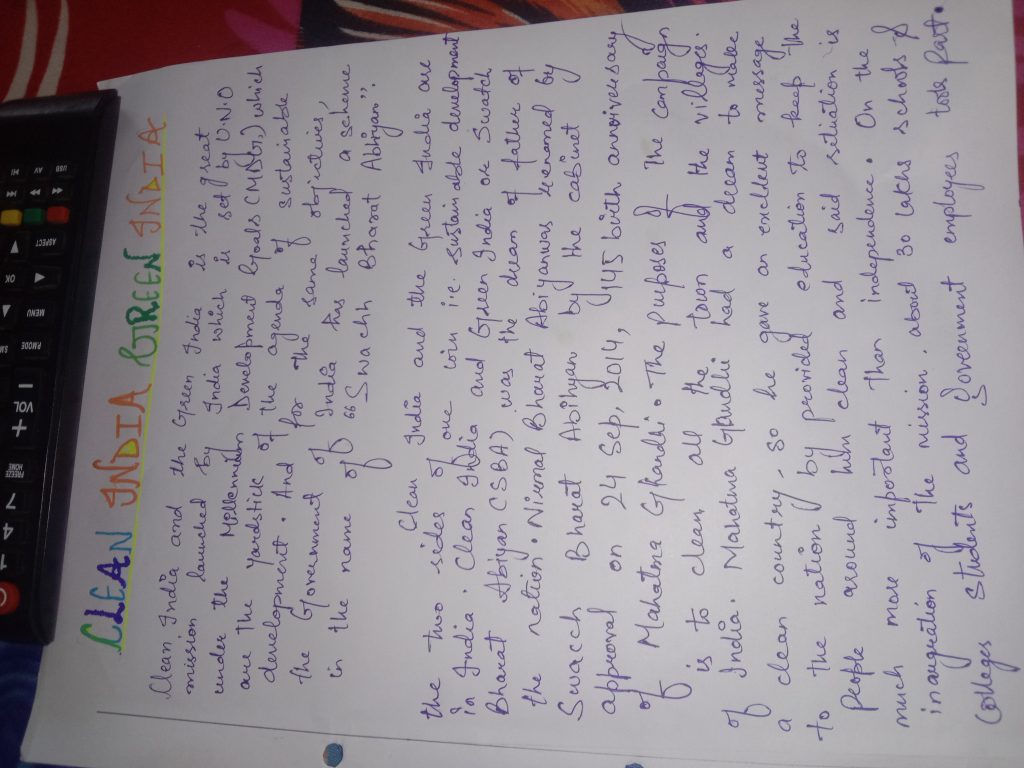 CLEAN INDIA GREEN INDIA
Clean India and the Green India is the great
mission launched By India which is set by U.N.O
under the Mellennium Development Goals (MNDG,) which
are the yardstick of the agenda of sustainable
development. And for the same objectives,
the Government of India has launched a scheme
in the name of "Swachh Bharat Abhiyan".
Clean India and the Green India are
the two sides of one coin i.e. sustainable development
in India. Clean India and Green India or Swatch
Bharat Abiyan (SBA) was the dream of father of
the nation. Nirmal Bharat Abiyan was renamed by
Swacch Bharat Abihyan by the cabinet
approval on 24 Sep, 2014, 145 birth anniversary
of Mahatma Ghandi. The purposes of The campaign
is to clean all the town and the villages.
of India. Mahatma Gandhi had a dream to make
a clean country, so he gave an excllent message
to the nation by provided education to keep the
people around him clean and said situation is
much more important Than independence. On the
inaugration of The mission. about 30 lakhs schools &
Colleges students and Government employes took part.
USB AV
ASPECT
OK
MENU
PMODE
VOL
+
FREEZE
HOME
7
4
1